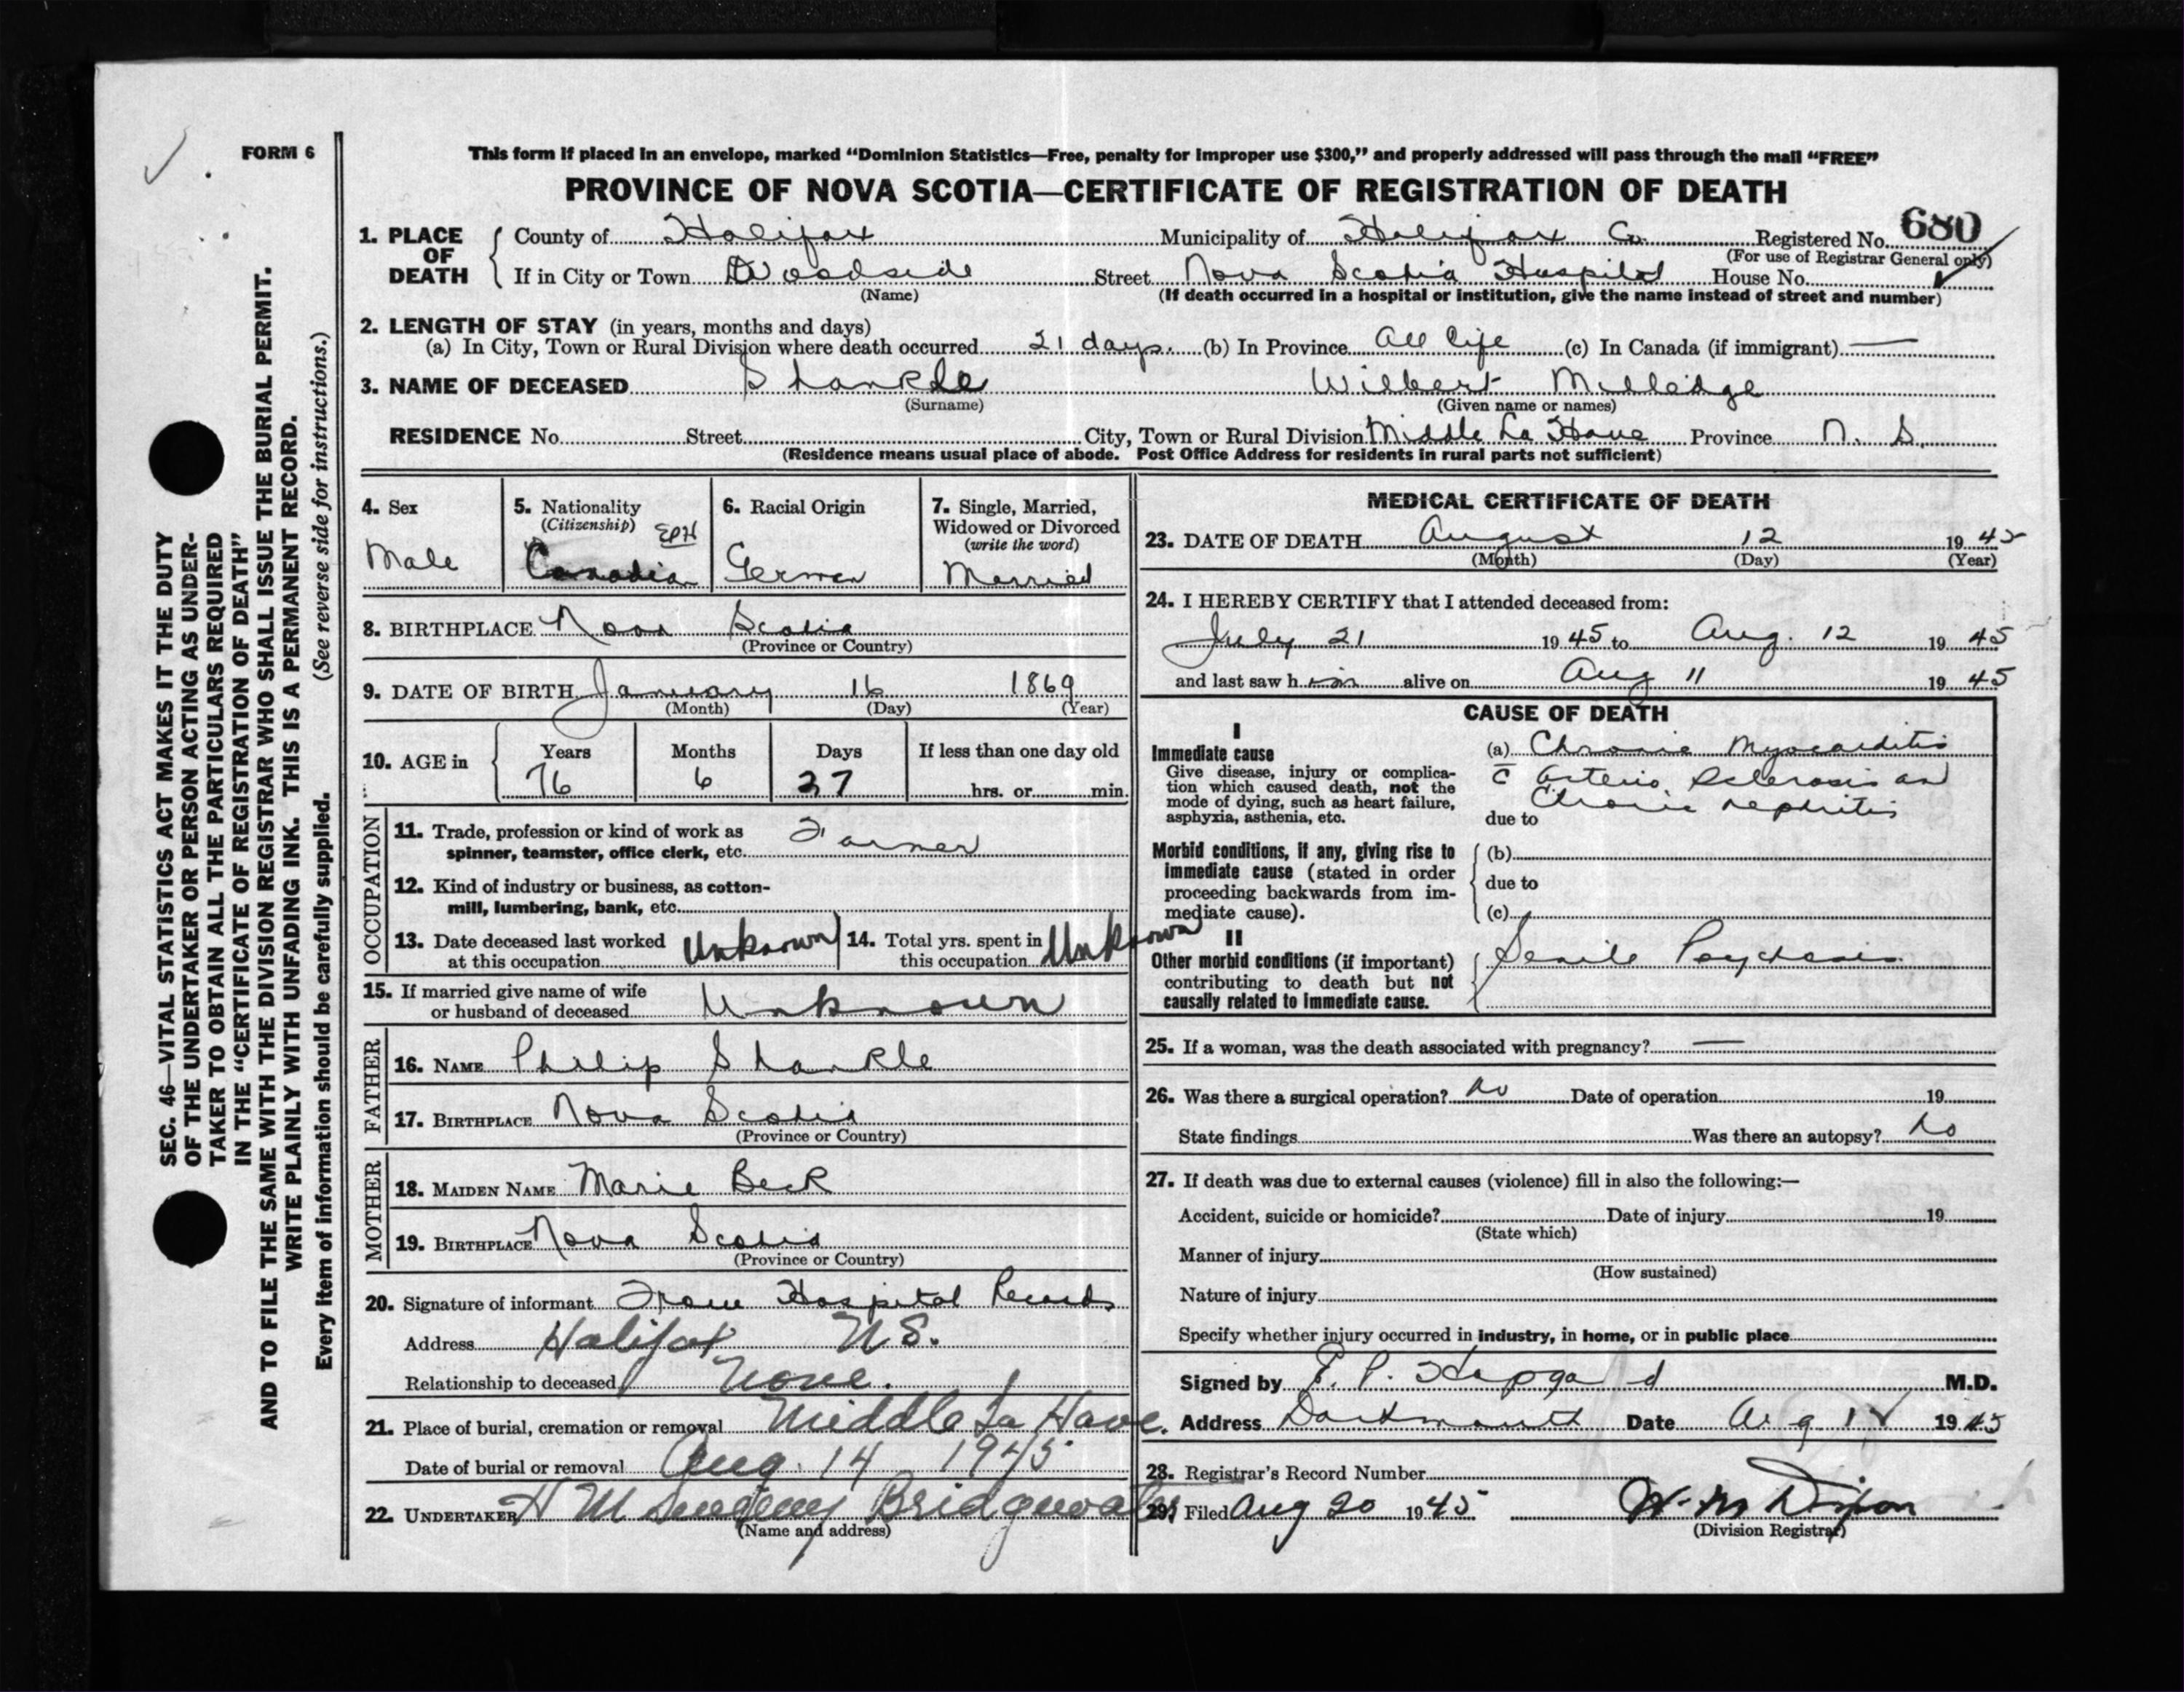 FORM 6
This form if placed in an envelope, marked “Dominion Statistics—Free, penalty for improper use $300,” and properly addressed will pass through the mail “FREE”
PROVINCE OF NOVA SCOTIA—CERTIFICATE OF REGISTRATION OF DEATH
1. PLACE OF DEATH
County of Halifax Municipality of Halifax Co. Registered No. 680
(For use of Registrar General only)
If in City or Town Woodside Street Nova Scotia Hospital House No.
(Name) (If death occurred in a hospital or institution, give the name instead of street and number)
2. LENGTH OF STAY (in years, months and days)
(a) In City, Town or Rural Division where death occurred 21 days. (b) In Province All life (c) In Canada (if immigrant) —
3. NAME OF DECEASED Shankle Wilbert Milledge
(Surname) (Given name or names)
RESIDENCE No. Street City, Town or Rural Division Middle La Have Province N. S.
(Residence means usual place of abode. Post Office Address for residents in rural parts not sufficient)
4. Sex
Male
5. Nationality
(Citizenship) EPH
Canadian
6. Racial Origin
German
7. Single, Married,
Widowed or Divorced
(write the word)
Married
8. BIRTHPLACE Nova Scotia
(Province or Country)
9. DATE OF BIRTH January 16 1869
(Month) (Day) (Year)
10. AGE in
Years Months Days If less than one day old
76 6 27 hrs. or min.
OCCUPATION
11. Trade, profession or kind of work as
spinner, teamster, office clerk, etc. Farmer
12. Kind of industry or business, as cotton-
mill, lumbering, bank, etc.
13. Date deceased last worked
at this occupation Unknown
14. Total yrs. spent in
this occupation Unknown
15. If married give name of wife
or husband of deceased Unknown
FATHER
16. NAME Philip Shankle
17. BIRTHPLACE Nova Scotia
(Province or Country)
MOTHER
18. MAIDEN NAME Marie Beck
19. BIRTHPLACE Nova Scotia
(Province or Country)
20. Signature of informant From Hospital Records
Address Halifax N.S.
Relationship to deceased None.
21. Place of burial, cremation or removal Middle La Have.
Date of burial or removal Aug. 14 1945
22. UNDERTAKER H M Bridgewater
(Name and address)
MEDICAL CERTIFICATE OF DEATH
23. DATE OF DEATH August 12 1945
(Month) (Day) (Year)
24. I HEREBY CERTIFY that I attended deceased from:
July 21 1945 to Aug. 12 1945
and last saw him alive on Aug 11 1945
CAUSE OF DEATH
I
Immediate cause
Give disease, injury or complica-
tion which caused death, not the
mode of dying, such as heart failure,
asphyxia, asthenia, etc.
(a) Chronic Myocarditis
c̄ Arterio Sclerosis and
Chronic nephritis
due to
Morbid conditions, if any, giving rise to
immediate cause (stated in order
proceeding backwards from im-
mediate cause).
(b)
due to
(c)
II
Other morbid conditions (if important)
contributing to death but not
causally related to immediate cause.
Senile Psychosis
25. If a woman, was the death associated with pregnancy? —
26. Was there a surgical operation? No Date of operation 19
State findings Was there an autopsy? No
27. If death was due to external causes (violence) fill in also the following:—
Accident, suicide or homicide? Date of injury 19
(State which)
Manner of injury
(How sustained)
Nature of injury
Specify whether injury occurred in industry, in home, or in public place
Signed by M.D.
Address Dartmouth Date Aug 1945
28. Registrar's Record Number
29. Filed Aug 20 1945 W. M Dixon
(Division Registrar)
SEC. 46—VITAL STATISTICS ACT MAKES IT THE DUTY
OF THE UNDERTAKER OR PERSON ACTING AS UNDER-
TAKER TO OBTAIN ALL THE PARTICULARS REQUIRED
IN THE “CERTIFICATE OF REGISTRATION OF DEATH”
AND TO FILE THE SAME WITH THE DIVISION REGISTRAR WHO SHALL ISSUE THE BURIAL PERMIT.
WRITE PLAINLY WITH UNFADING INK. THIS IS A PERMANENT RECORD.
Every item of information should be carefully supplied. (See reverse side for instructions.)